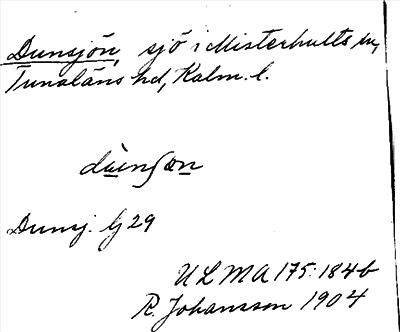 Dunsjön, sjö i Misterhults sn,
Tunaläns hd, Kalm. l.
Dunsj. Gj 29
ULMA 175:184b
R. Johansson 1904